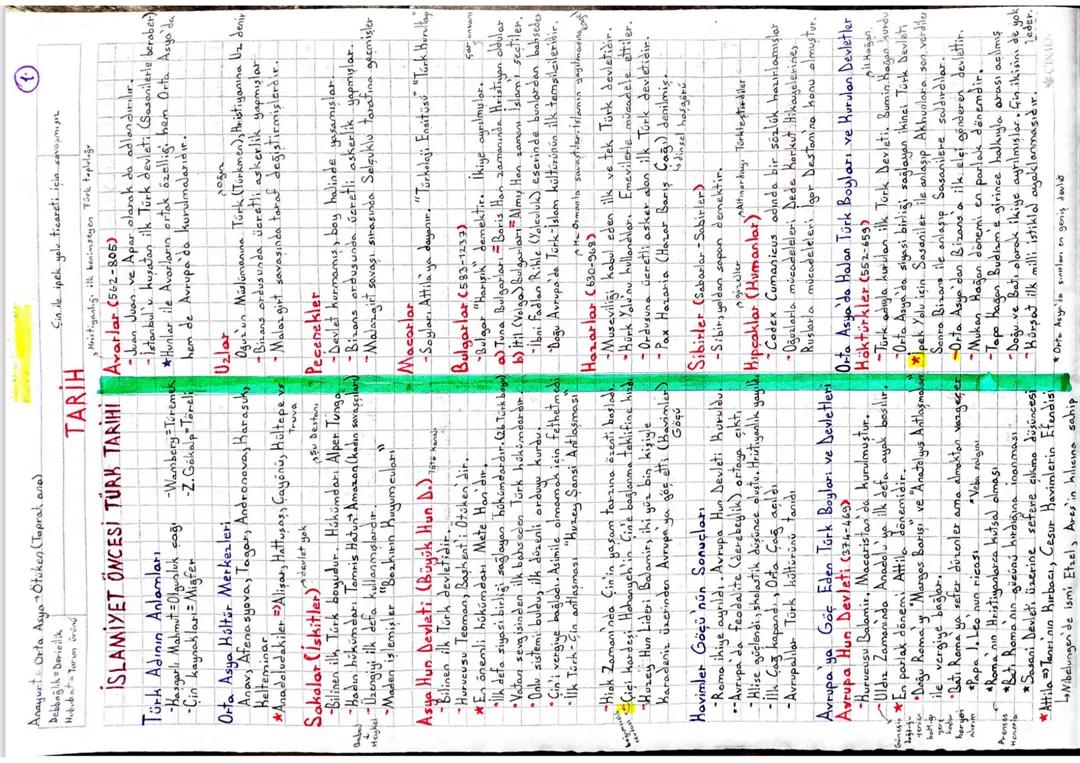 Anayurt = Orta Asya → Ötüken (Toprak ana)
Debbağlık = Dericilik
Hububat = Tarım ürünü
Çin ile ipek yolu ticareti için savaşmışız
1
TARİH
İSLAMİYET ÖNCESİ TÜRK TARİHİ
Türk Adının Anlamları
- Kaşgarlı Mahmut = Olgunluk çağı
- Wambery = Türemek
- Çin kaynakları = Miğfer
- Z. Gökalp = Töreli
Orta Asya Kültür Merkezleri
Anav, Afenesyova, Tagar, Andronova, Karasuk,
Kelteminar
★ Anadoludakiler ⇒ Alişar, Hattuşaş, Çayönü, Kültepe ve
Truva
Sakalar (İskitler) → devlet yok
Şu Destanı
- Bilinen ilk Türk boyudur. Hükümdarı Alper Tunga
- Kadın hükümdarı Tomris Hatun → Amazon (kadın savaşçıları)
- Üzengiyi ilk defa kullanmışlardır.
- Maden işlemişler "Bozkırın Kuyumcuları"
Balbal
↓
Heykel
Asya Hun Devleti (Büyük Hun D.)
- Bilinen ilk Türk devletidir.
- Kurucusu Teoman, Başkent'i Ötüken'dir.
★ En önemli hükümdarı Mete Han'dır.
- İlk defa siyasi birliği sağlayan hükümdardır. (26 Türk boyu)
- Vatan sevgisinden ilk bahseden Türk hükümdardır.
- Onlu sistemi buldu, ilk düzenli orduyu kurdu.
- Çin'i vergiye bağladı. Asimile olmamak için fethetmedi
- İlk Türk-Çin antlaşması "Kuzey Şansi Antlaşması"
- Kiok Zamanında Çin'in yaşam tarzına özenti başladı.
- Çiçi kardeşi Hohanyeh'in Çin'e bağlanma teklifine
- Kuzey Hun lideri Balamir, iki yüz bin kişiyle
Karadeniz üzerinden Avrupa'ya göç etti (Kavimler)
Göçü
Kavimler Göçü'nün Sonuçları
- Roma ikiye ayrıldı. Avrupa Hun Devleti Kuruldu.
- Avrupa'da feodalite (derebeylik) ortaya çıktı.
- Kilise güçlendi, skolastik düşünce oluştu. Hristiyanlık yayıldı
- İlk Çağ kapandı, Orta Çağ açıldı
- Avrupalılar Türk kültürünü tanıdı
Avrupa'ya Göç Eden Türk Boyları ve Devletleri
Avrupa Hun Devleti (374-469)
- Kurucusu Balamir, Macaristan'da kurulmuştur.
- Uldız Zamanında Anadolu'ya ilk defa ayak basılır.
★ En parlak dönemi Attila dönemidir.
- Doğu Roma'yı "Margos Barışı" ve "Anatolyus Antlaşmaları"
ile vergiye bağlar.
- Batı Roma'ya sefer düzenler ama almaktan vazgeçer
★ Papa I. Leo'nun ricası
★ Veba salgını
★ Roma'nın Hristiyanlarca kutsal olması
★ Batı Roma'nın gücünü kırdığına inanması
★ Sasani Devleti üzerine sefere çıkma düşüncesi
★ Attila ⇒ Tanrı'nın Kırbacı, Cesur Kavimlerin Efendisi
↳ Nibelungen'de ismi Etzel, Ares'in kılıcına sahip
Prenses
Honoria
Hristiyanlığı ilk benimseyen Türk topluluğu
Avarlar (562-805)
- Juan Juan ve Apar olarak da adlandırılır.
- İstanbul'u kuşatan ilk Türk devleti (Sasanilerle beraber)
★ Hunlar ile Avarların ortak özelliği hem Orta Asya'da
hem de Avrupa'da kurulmalarıdır.
Uzlar
→ Oğuz
Oğuz'un Müslümanına Türk (Türkmen), Hristiyanına Uz denir
- Bizans ordusunda ücretli askerlik yapmışlar
- Malazgirt savaşında taraf değiştirmişlerdir.
Peçenekler
- Devlet kurmamış, boy halinde yaşamışlar.
- Bizans ordusunda ücretli askerlik yapmışlar.
- Malazgirt savaşı sırasında Selçuklu tarafına geçmişler
Macarlar
- Soyları Attila'ya dayanır. "Türkoloji Enstitüsü" "Türk Kurultayı"
Bulgarlar (583-1237)
- Bulgar "karışık" demektir. İkiye ayrılmışlar.
a) Tuna Bulgarları = Boris Han zamanında Hristiyan oldular
b) İtil (Volga) Bulgarları = Almış Han zamanı İslamı seçtiler.
- İbni Fadlan Rıhle (Yolculuk) eserinde bunlardan bahseder
- Doğu Avrupa'da Türk-İslam kültürünün ilk temsilcileridir.
Hazarlar (630-968)
- Museviliği kabul eden ilk ve tek Türk devletidir.
- Kürk Yolu'nu kullandılar. Emevilerle mücadele ettiler.
- Ordusuna ücretli asker alan ilk Türk devletidir.
- Pax Hazaria (Hazar Barış Çağı) denilmiş.
↳ dinsel hoşgörü
Sibirler (Sabarlar-Sabirler)
- Sibir; yoldan sapan demektir.
Kıpçaklar (Kumanlar)
- Codex Cumanicus adında bir sözlük hazırlatmışlar
- Oğuzlarla mücadeleleri Dede Korkut Hikayelerine,
Ruslarla mücadeleleri İgor Destanına konu olmuştur.
Orta Asya'da Kalan Türk Boyları ve Kurulan Devletler
Köktürkler (552-659)
- Türk adıyla kurulan ilk Türk Devleti. Bumin Kağan kurdu
- Orta Asya'da siyasi birliği sağlayan ikinci Türk Devleti
★ İpek Yolu için Sasaniler ile anlaşıp Akhunlara son verdiler
Sonra Bizans ile anlaşıp Sasanilere saldırdılar.
- Orta Asya'dan Bizans'a ilk elçi gönderen devlettir.
- Mukan Kağan dönemi en parlak dönemdir.
- Tapo Kağan Budizm'e girince halkıyla arası açılmış
- Doğu ve Batı olarak ikiye ayrılmışlar. Çin ikisini de yok
eder.
- Kürşat ilk milli istiklal ayaklanmasıdır.
★ Orta Asya'da sınırları en geniş devlet